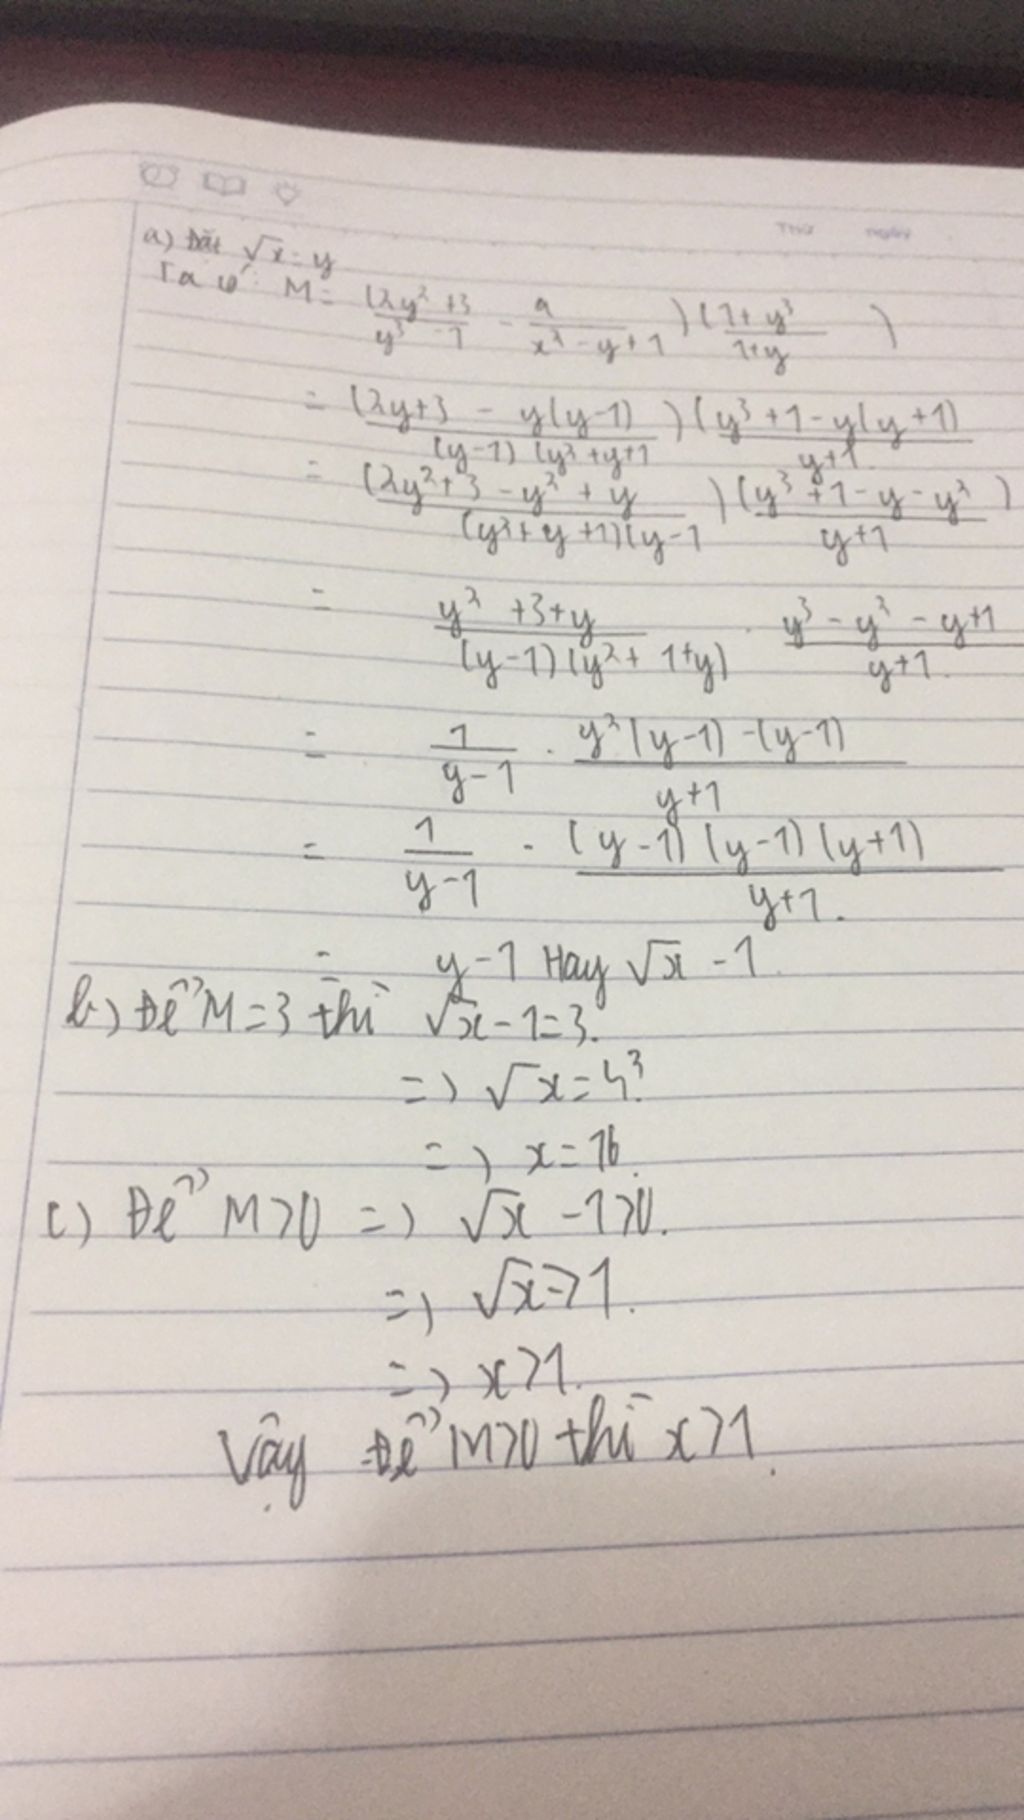 Thứ ngày
a) Đặt √x = y
Ta có: M = (2y² + 3 / y³ - 1 - a / x² - y + 1) (1 + y³ / 1 + y)
= (2y + 3 - y(y-1) / (y-1)(y² + y + 1) (y³ + 1 - y(y+1) / y+1.
= (2y² + 3 - y² + y / (y² + y + 1)(y-1) (y³ + 1 - y - y² / y+1)
= y² + 3 + y / (y-1)(y² + 1 + y) . y³ - y² - y + 1 / y+1.
= 1 / y-1 . y²(y-1) - (y-1) / y+1
= 1 / y-1 . (y-1)(y-1)(y+1) / y+1.
= y-1 Hay √x - 1
b) Để M = 3 thì √x - 1 = 3.
=> √x = 4
=> x = 16.
c) Để M > 0 => √x - 1 > 0.
=> √x > 1.
=> x > 1.
Vậy để M > 0 thì x > 1.